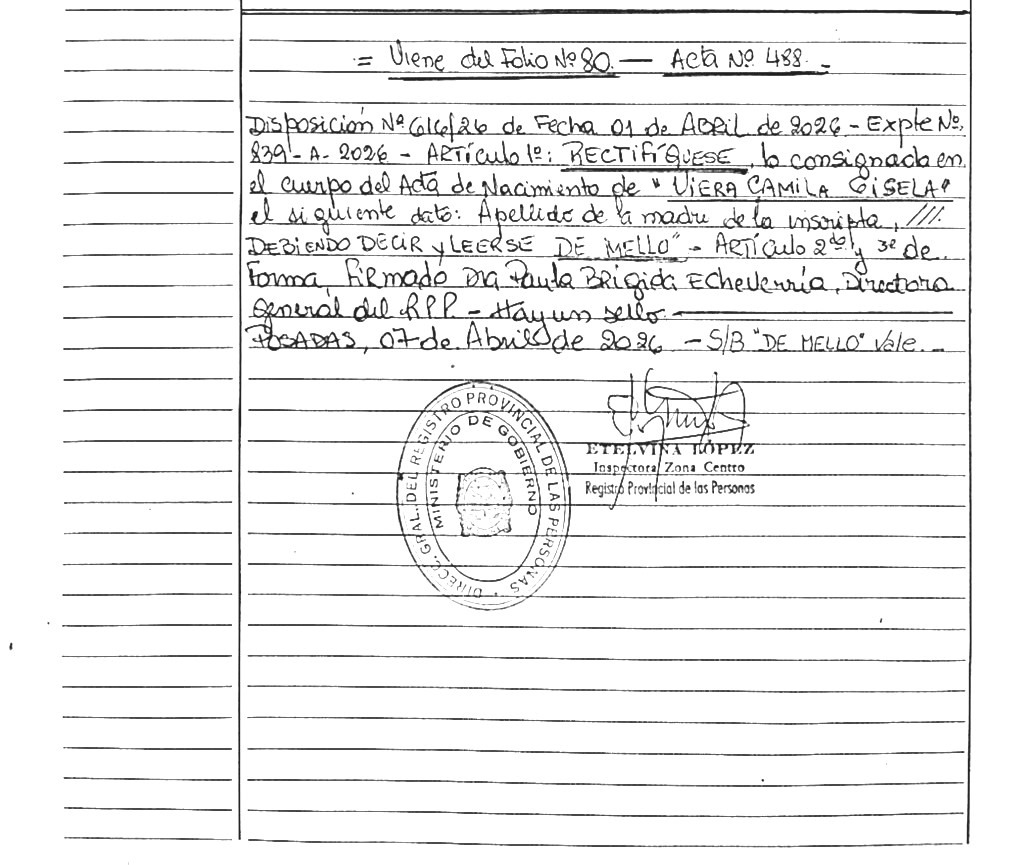 = Viene del Folio Nº 80. — Acta Nº 488. -
Disposición Nº 616/26 de Fecha 01 de ABRIL de 2026 - Expte Nº.
839 - A - 2026 - ARTículo 1º: RECTIFÍQUESE, lo consignado en
el cuerpo del Acta de Nacimiento de "VIERA CAMILA GISELA"
el siguiente dato: Apellido de la madre de la inscripta, ///.
DEBIENDO DECIR y LEERSE DE MELLO" - ARTÍCulo 2do y 3º de
Forma, FiRMADO DRA Paula BRÍGIDA ECHEVERRÍA, Directora
General del RPP - Hay un sello.
POSADAS, 07 de Abril de 2026 - S/B "DE MELLO" Vale. -
ETELVINA LOPEZ
Inspectora Zona Centro
Registro Provincial de las Personas
DIRECC. GRAL. DEL REGISTRO PROVINCIAL DE LAS PERSONAS
MINISTERIO DE GOBIERNO